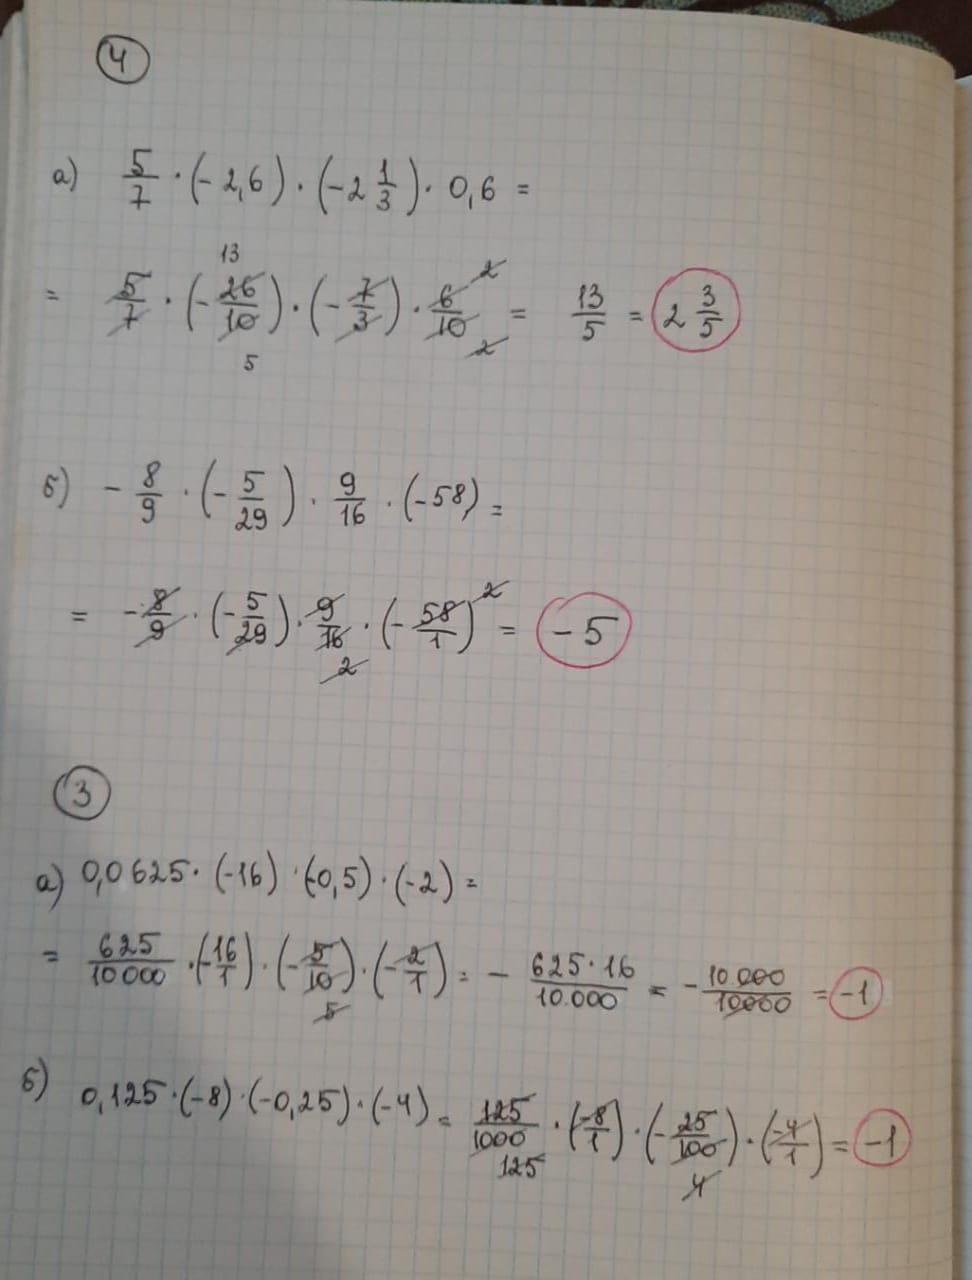 4
а) 5/7 · (- 2,6) · (-2 1/3) · 0,6 =
= 5/7 · (- 26/10) · (- 7/3) · 6/10 = 13/5 = 2 3/5
13 5 2 2
б) - 8/9 · (- 5/29) · 9/16 · (-58) =
= - 8/9 · (- 5/29) · 9/16 · (- 58/1) = -5
2 2
3
а) 0,0625 · (-16) · (-0,5) · (-2) =
= 625/10000 · (-16/1) · (- 5/10) · (- 2/1) = - 625·16/10.000 = - 10.000/10000 = -1
5
б) 0,125 · (-8) · (-0,25) · (-4) = 125/1000 · (-8/1) · (- 25/100) · (-4/1) = -1
125 4